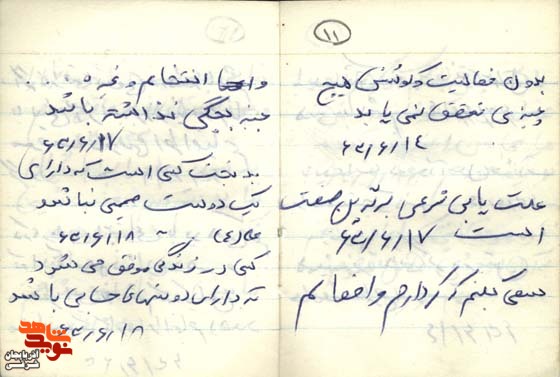 ۱۱
بدون فعالیت و کوشش هیچ
چیزی تحقق نمی یابد
۶۳/۶/۱۴
علت یابی نوعی برترین صفت
است ۶۳/۶/۱۷
سعی کنم که کردارم و افعالم
و انتخابم و غیره
جنبه بچگی نداشته باشد
۶۳/۶/۱۷
بدبخت کسی است که دارای
یک دوست صمیمی نباشد
علی (ع) ۶۳/۶/۱۸
کسی در زندگی موفق می شود
که دارای دوستهای حسابی باشد
۶۳/۶/۱۸
نوید شاهد
آذربایجان شرقی